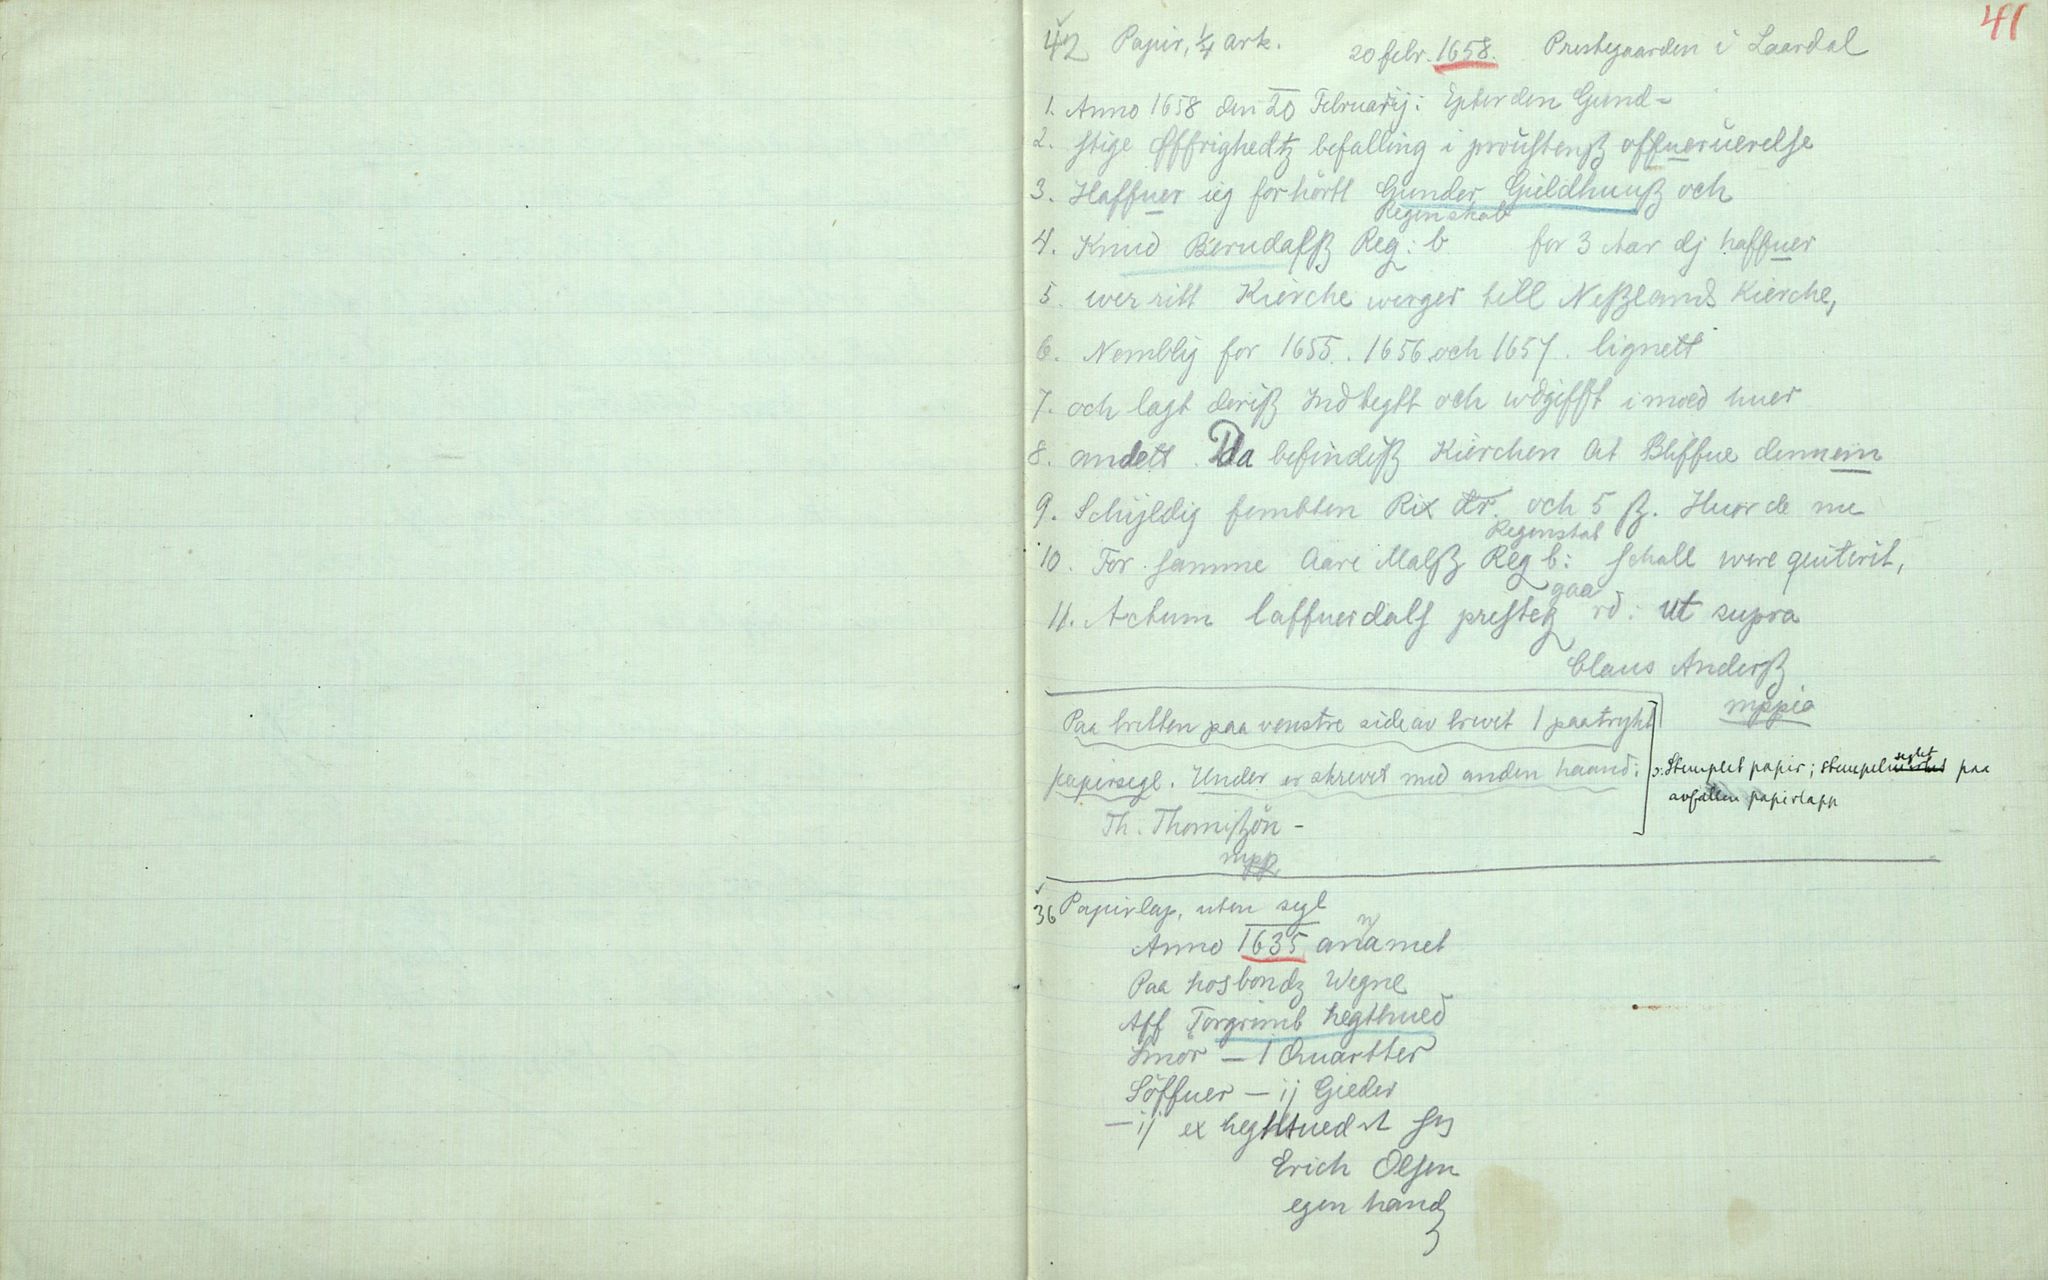 41
42 Papir, 1/4 ark. 20 febr. 1658. Prestegaarden i Laardal
1. Anno 1658 den 20 Februarij: Epter den Gund-
2. stige Øffrighedtz befalling i proustenß offueruerelse
3. Haffuer ieg forhörtt Gunder Guldhuuß och
Regenskab
4. Knud Berudalß Reg: b for 3 Aar dj haffuer
5. werritt Kierche werger till Neßlands Kierche,
6. Nemblig for 1655. 1656 och 1657. lignett
7. och lagt deriß Indtegtt och wdgifft imoed huer
8. andett. Da befindiß Kierchen at Bliffue dennem
9. Schyldig fembten Rix dr. och 5 ß. Huor de nu
Regenskab
10. For samme Aare Malß Reg b: schall were quiterit,
gaa
11. Actum laffuerdals presteg rd: ut supra
Claus Anderß
mppia
Paa bretten paa venstre side av brevet 1 paatrykt
papirsegl. Under er skrevet med anden haand:
ɔ: Stemplet papir; stempelseglet paa
avfallen papirlapp
Th. Thomißön -
mpp
36 Papirlap, uten segl
Anno 1635 anamet
n
Paa hosbondz Wegne
Aff Torgrimb hegthued
Smör — 1 Quartter
Söffuer — ij Gieder
— ij ex hegthued
Erich Olsen
egen handz